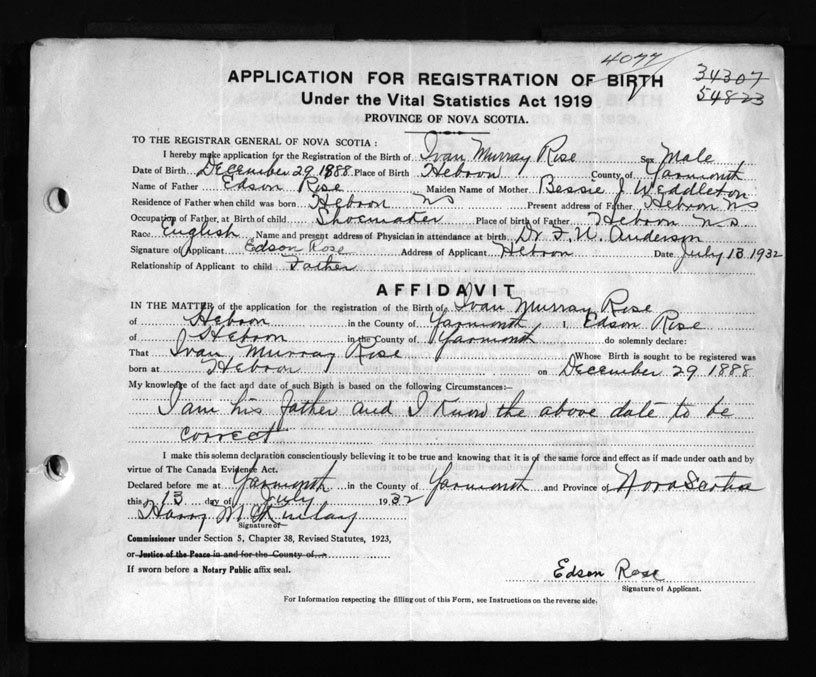 4077
APPLICATION FOR REGISTRATION OF BIRTH 34307
Under the Vital Statistics Act 1919 54823
PROVINCE OF NOVA SCOTIA.
TO THE REGISTRAR GENERAL OF NOVA SCOTIA :
I hereby make application for the Registration of the Birth of Ivan Murray Rose Sex Male
Date of Birth December 29 1888. Place of Birth Hebron County of Yarmouth
Name of Father Edson Rose Maiden Name of Mother Bessie J Weddleton
Residence of Father when child was born Hebron NS Present address of Father Hebron NS
Occupation of Father, at Birth of child Shoemaker Place of birth of Father Hebron NS
Race English Name and present address of Physician in attendance at birth Dr F. W. Anderson
Signature of Applicant Edson Rose Address of Applicant Hebron Date July 13 1932
Relationship of Applicant to child Father
AFFIDAVIT
IN THE MATTER of the application for the registration of the Birth of Ivan Murray Rose
of Hebron in the County of Yarmouth I, Edson Rose
of Hebron in the County of Yarmouth do solemnly declare:
That Ivan Murray Rose Whose Birth is sought to be registered was
born at Hebron on December 29 1888
My knowledge of the fact and date of such Birth is based on the following Circumstances:—
I am his father and I know the above date to be
correct
I make this solemn declaration conscientiously believing it to be true and knowing that it is of the same force and effect as if made under oath and by
virtue of The Canada Evidence Act.
Declared before me at Yarmouth in the County of Yarmouth and Province of Nova Scotia
this 13 day of July 1932
Harry M
Signature of
Commissioner under Section 5, Chapter 38, Revised Statutes, 1923,
or Justice of the Peace in and for the County of
If sworn before a Notary Public affix seal.
Edson Rose
Signature of Applicant.
For Information respecting the filling out of this Form, see Instructions on the reverse side.